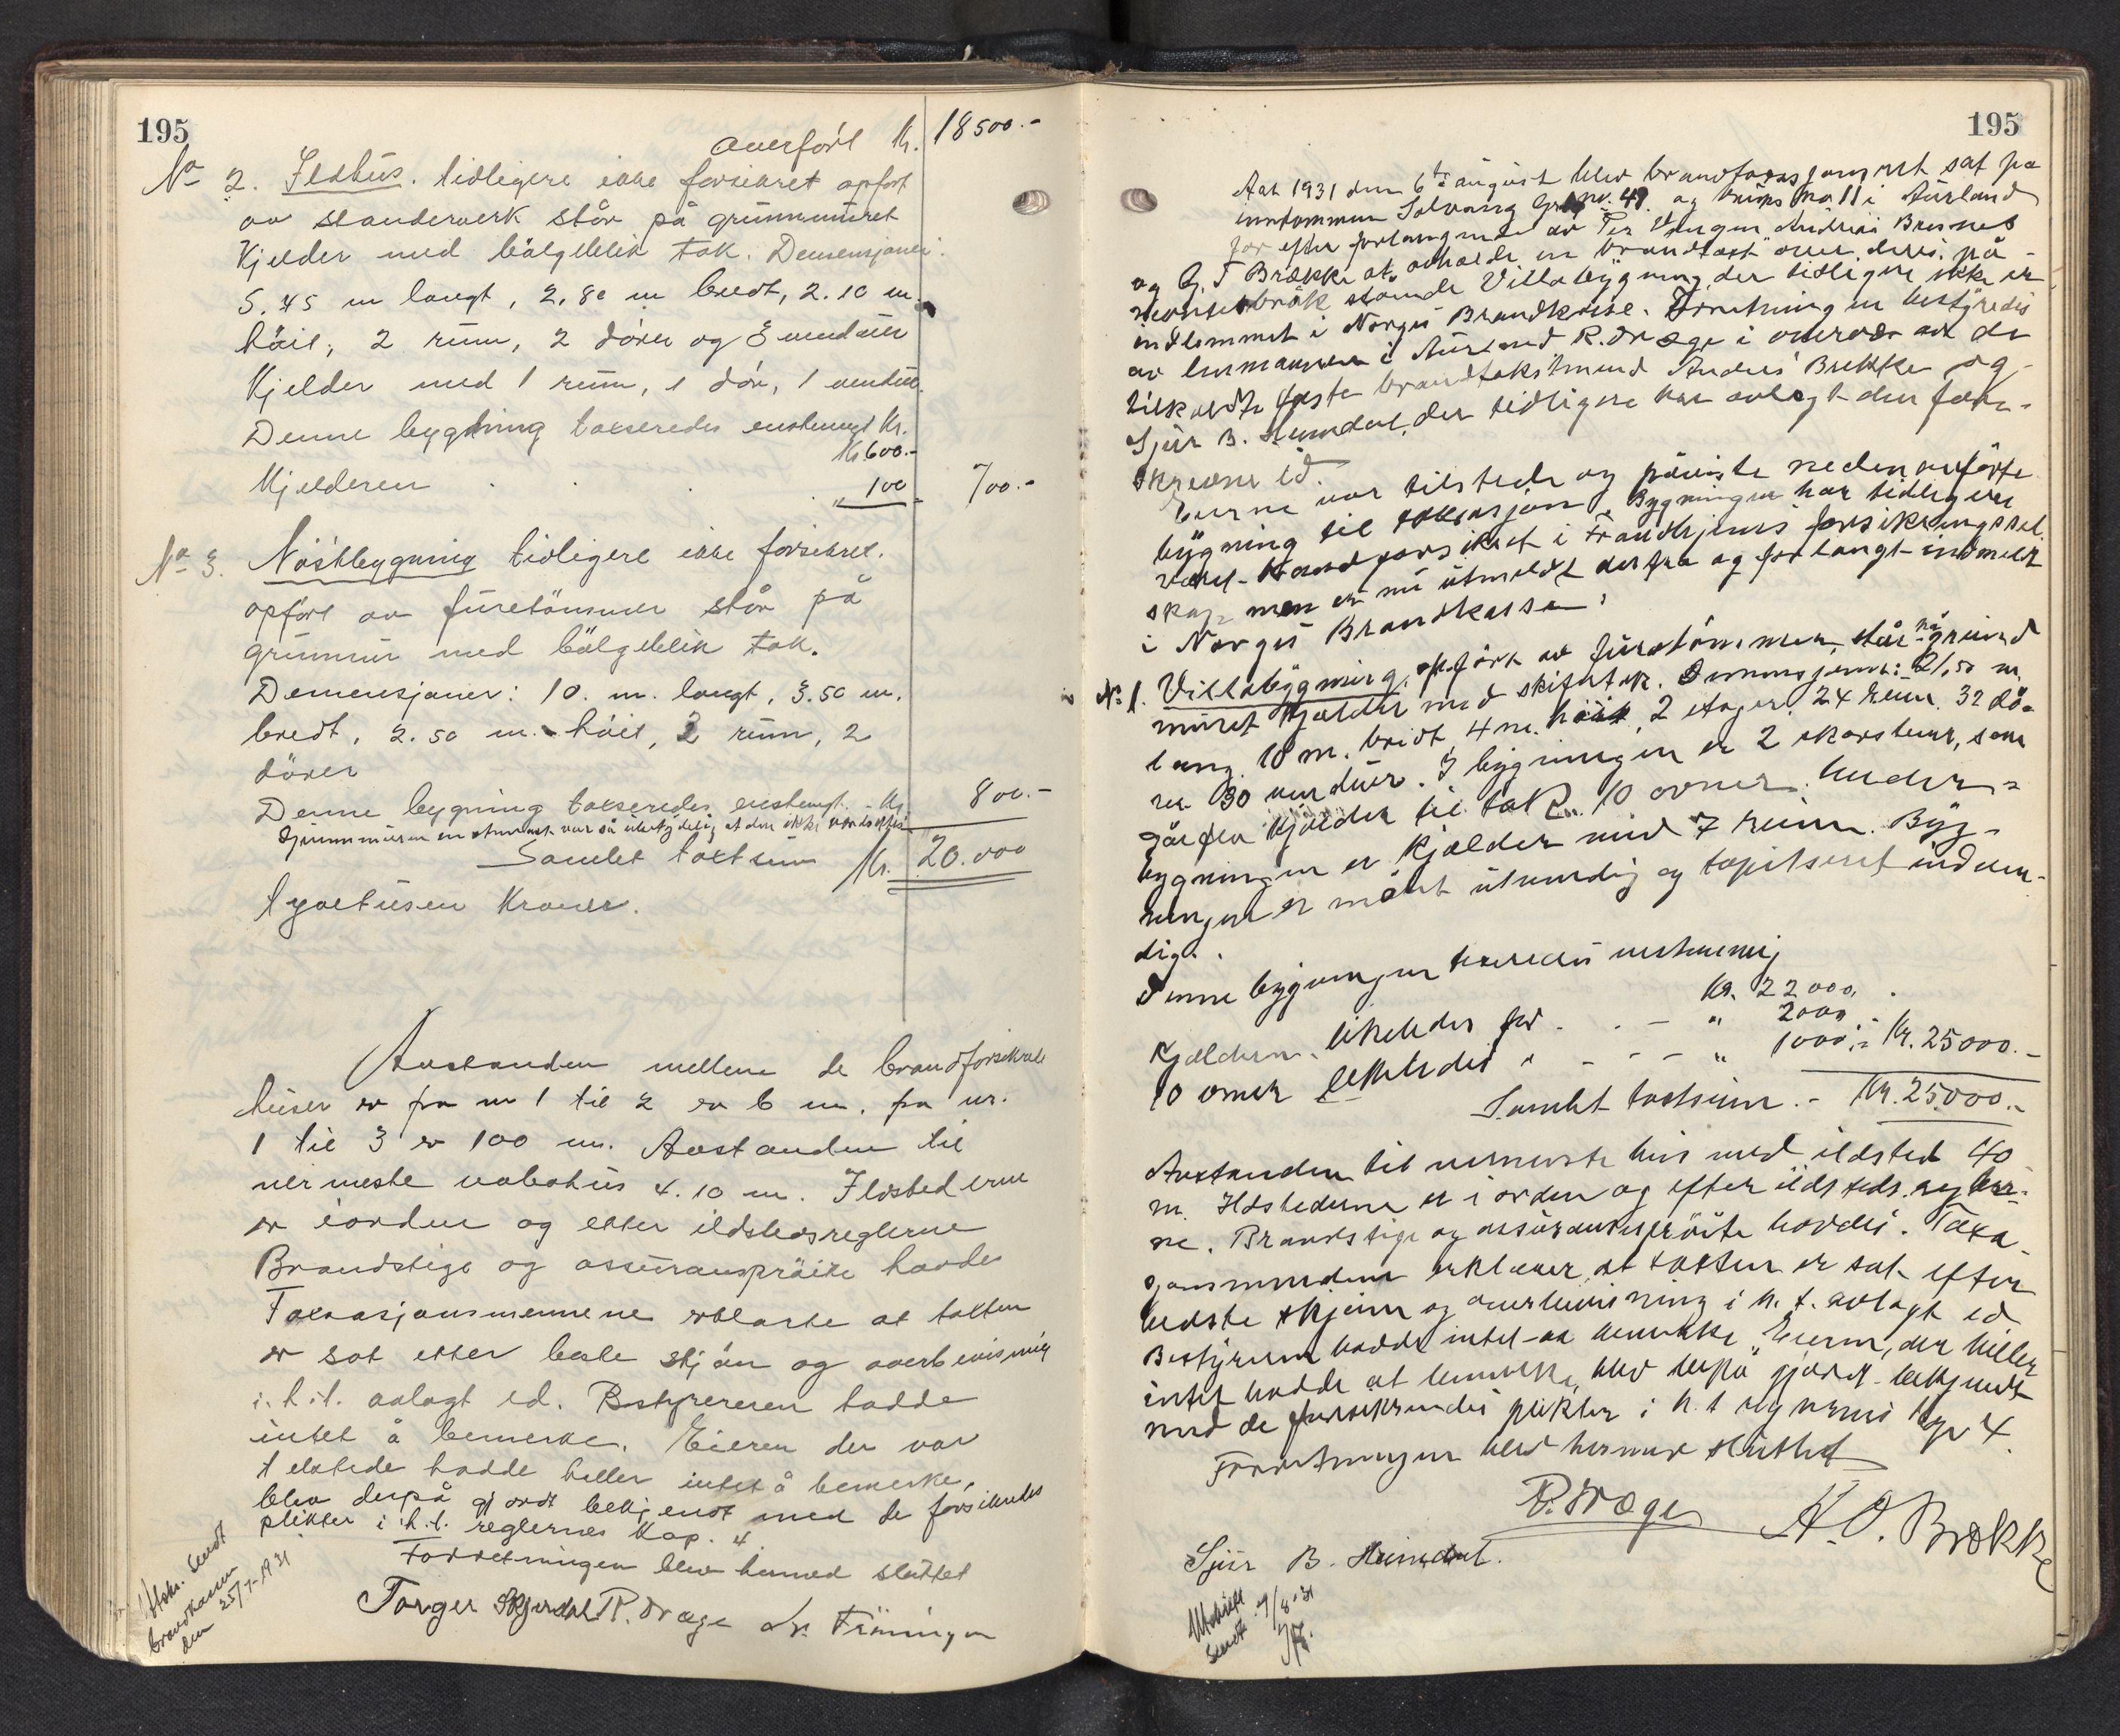 195
overført Kr. 18500.-
No 2. Ildhus. tidligere ikke forsikret opført
av standerverk står på grunnmuret
Kjelder med bølgeblik tak. Demensjoner:
5.45 m langt, 2.80 m bredt, 2.10 m.
høit, 2 rum, 2 dører og 3 vinduer
Kjelder med 1 rum, 1 dør, 1 vindu.
Denne bygning takseredes enstemigt Kr.
Kr 600.-
Kjelderen . . . " 100 - 700.-
No 3. Nøstbygning tidligere ikke forsikret.
opført av furetømmer står på
grunnmur med bølgeblik tak.
Demensjoner: 10. m. langt, 3.50 m.
bredt, 2.50 m. høit, 2 rum, 2
dører
Denne bygning takseredes enstemigt. - Kr. 800.-
Grunnmuren en var så ubetydelig at den ikke
Samlet takstsum Kr. 20.000
tyvetusen Kroner.
Avstanden mellem de brandforsikrede
huser er fra nr 1 til 2 er 6 m. fra nr.
1 til 3 er 100 m. Avstanden til
nermeste nabohus 4.10 m. Ildstederne
er iorden og etter ildstedsreglerne
Brandstige og assuransprøite havdes
Taksasjonsmennene erklærte at taksten
er sat etter beste skjøn og overbevisning
i. h. t. avlagt ed. Bestyreren hadde
intet å bemerke. Eieren der var
tilstede hadde heller intet å bemerke,
blev derpå gjordt bekjendt med de forsikredes
plikter i h. t. reglernes Kap. 4
Forretningen blev hermed sluttet
Torger Skjerdal R. Dræge
Utskr. sendt
brandkassen
den 25/7-1931
195
Aar 1931 den 6te august blev brandtaxasjonsrett sat på
eiendommen Solvang Gr. nr. 49. og bruks no 11 i Aurland
for efter forlangende av Per Vangen Andreas Bresnes
og G. T Brække at avholde en brandtakst over deres på
bruk stående Villabygning, der tidligere ikke er
indlemmet i Norges Brandkasse. Forretningen bestyredes
av lensmannen i Aurland R. Dræge i overvær av de
tilkaldte faste brandtakstmend Anders Brekke og
Sjur B. Heimdal, der tidligere har avlagt den fore-
skrevne ed.
Eierne var tilstede og påviste nedenanførte
bygning til taksasjon. Bygningen har tidligere
været brandforsikret i Trondhjems forsikringssel
skap men er nu utmeldt derfra og forlangt indmeldt
i Norges Brandkasse:
No 1. Villabygning, opført av furetømmer, står på grund
muret Kjælder med skifertak. Dimensjoner: 21,50 m.
lang. 10 m. bredt, 4 m. høit, 2 etager 24 rum. 32 dø-
rer 30 vinduer. I bygningen er 2 skorstener, som
går fra kjælder til tak. 10 ovner. Under-
bygningen er Kjælder med 7 rum. Byg-
ningen er malt utvendig og tapitseret indven-
dig.
Denne bygningen takseredes enstemmig
Kr. 22000.
Kjælderen likeledes for . . - " 2000
10 ovner likeledes " - - - " 1000:- Kr. 25000.-
Samlet takstsum .- Kr. 25000.-
Avstanden til nermeste hus med ildsted 40
m. Ildstederne er i orden og efter ildsteds regler-
ne. Brandstige og assuransesprøite havdes. Taxa-
sjonsmendene erklærer at taksten er sat efter
bedste skjønn og overbevisning i h. t. avlagt ed
Bestyreren hadde intet at bemerke. Eierne, der heller
intet hadde at bemerke, blev derpå gjordt bekjendt
med de forsikredes plikter i h. t. reglernes Kap 4.
Forretningen blev hermed sluttet
R. Dræge A. O. Brekke
Sjur B. Heimdal.
Utskrift
sendt 9/8-31